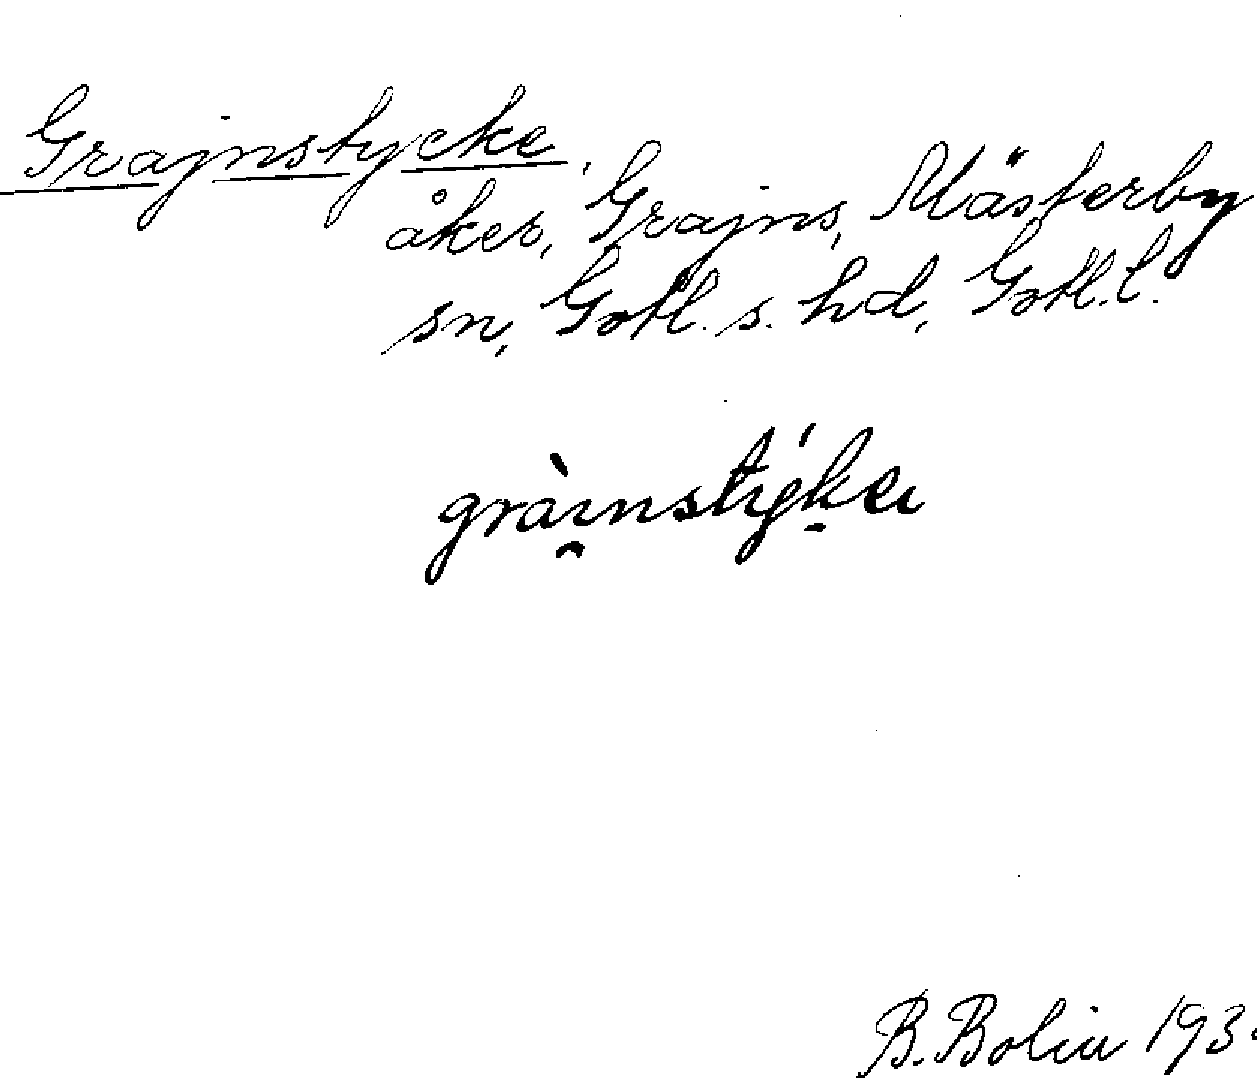 Grajnstycke,
åker, Grajns, Mästerby
sn, Gotl. s. hd, Gotl. l.
gràinstýkei
B. Bolin 193